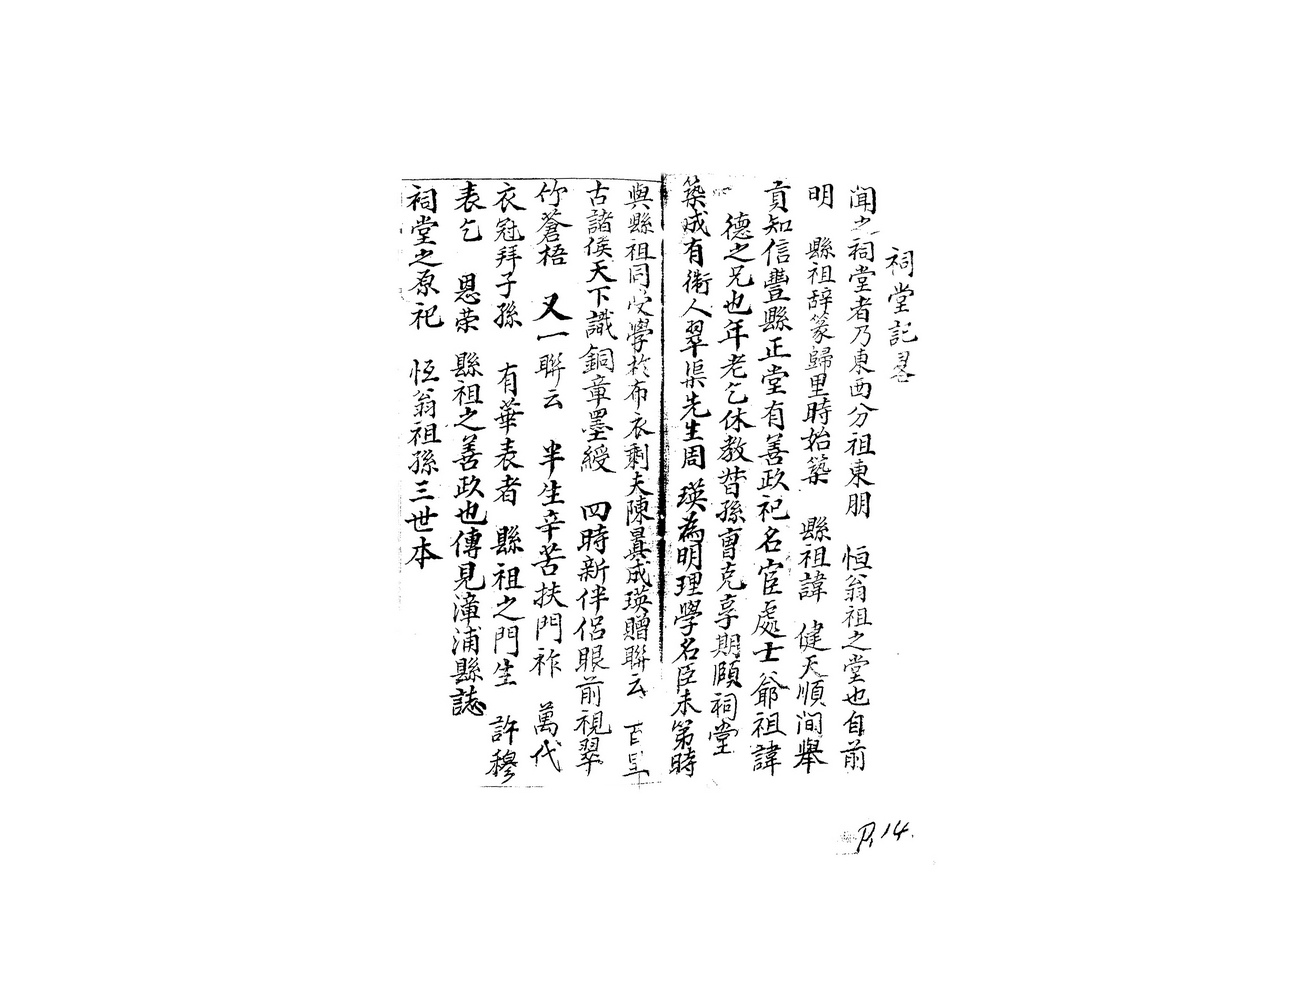 祠堂記畧
聞之祠堂者乃東西分祖東朋 恒翁祖之堂也自前
明 縣祖辞篆歸里時始築 縣祖諱 健天順間舉
貢知信豐縣正堂有善政祀名宦處士爺祖諱
德之兄也年老乞休教督孫曺克享期頤祠堂
築成有衛人翠渠先生周 瑛為明理學名臣未第時
與縣祖同受學於布衣剩夫陳真成瑛贈聯云 百里
古諸侯天下識銅章墨綬 四時新伴侣眼前視翠
竹蒼梧 又一聯云 半生辛苦扶門祚 萬代
衣冠拜子孫 有華表者 縣祖之門生 許穆
表乞 恩荣 縣祖之善政也傳見漳浦縣誌
祠堂之原祀 恒翁祖孫三世本
P.14.